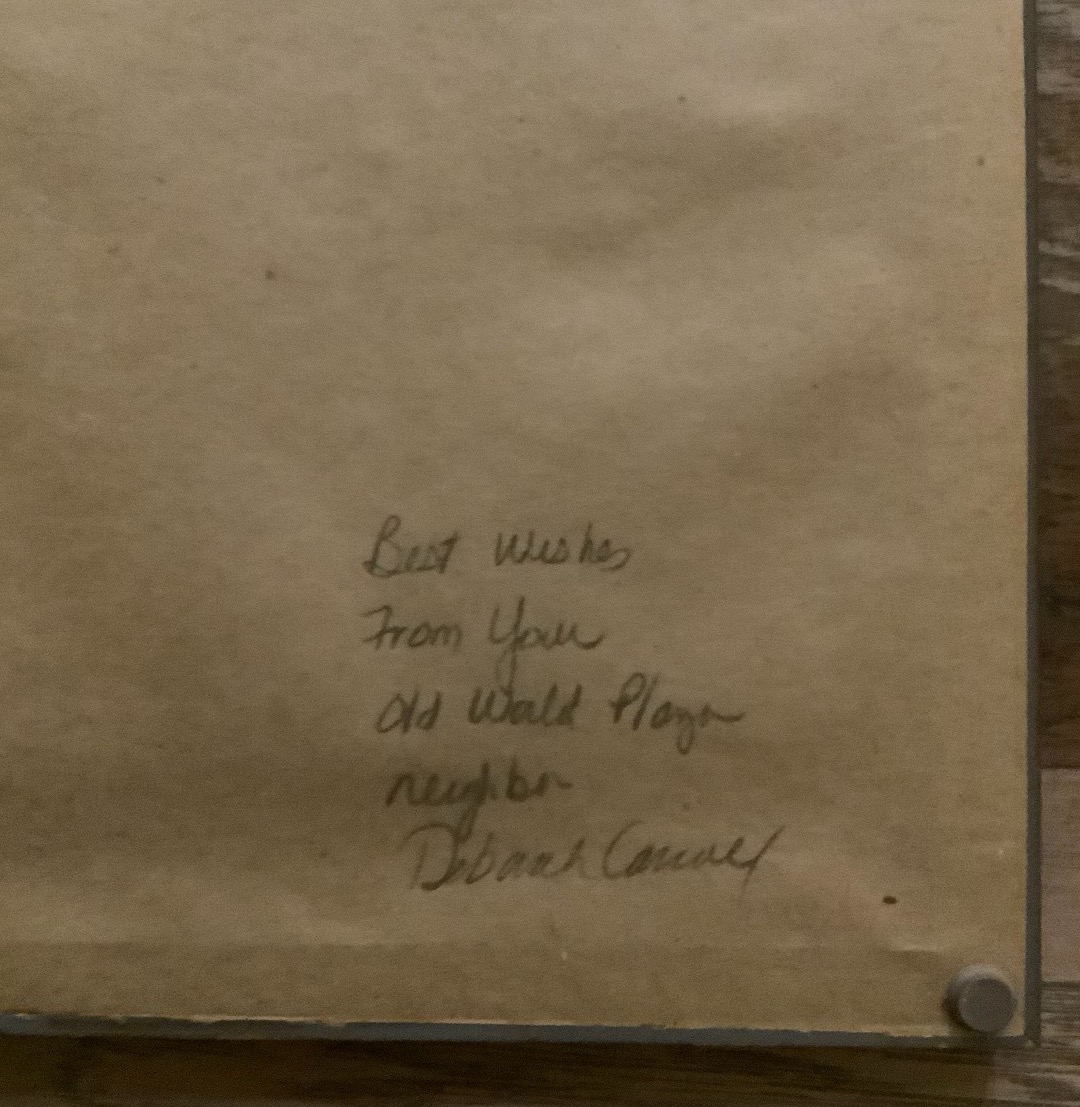 Best Wishes
From Your
Old World Plaza
neighbor
Deborah